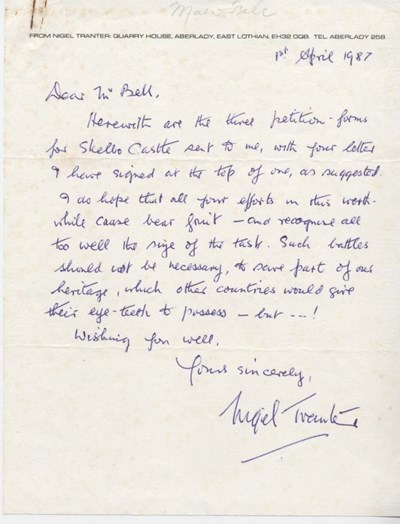 FROM NIGEL TRANTER: QUARRY HOUSE, ABERLADY, EAST LOTHIAN, EH32 0QB. TEL ABERLADY 258
1st April 1987
Dear Mr Bell,
Herewith are the three petition-forms
for Skelbo Castle sent to me, with your letter
I have signed at the top of one, as suggested.
I do hope that all your efforts in this worth-
while cause bear fruit – and recognise all
too well the size of the task. Such battles
should not be necessary, to save part of our
heritage, which other countries would give
their eye-teeth to possess – but --- !
Wishing you well,
Yours sincerely,
Nigel Tranter